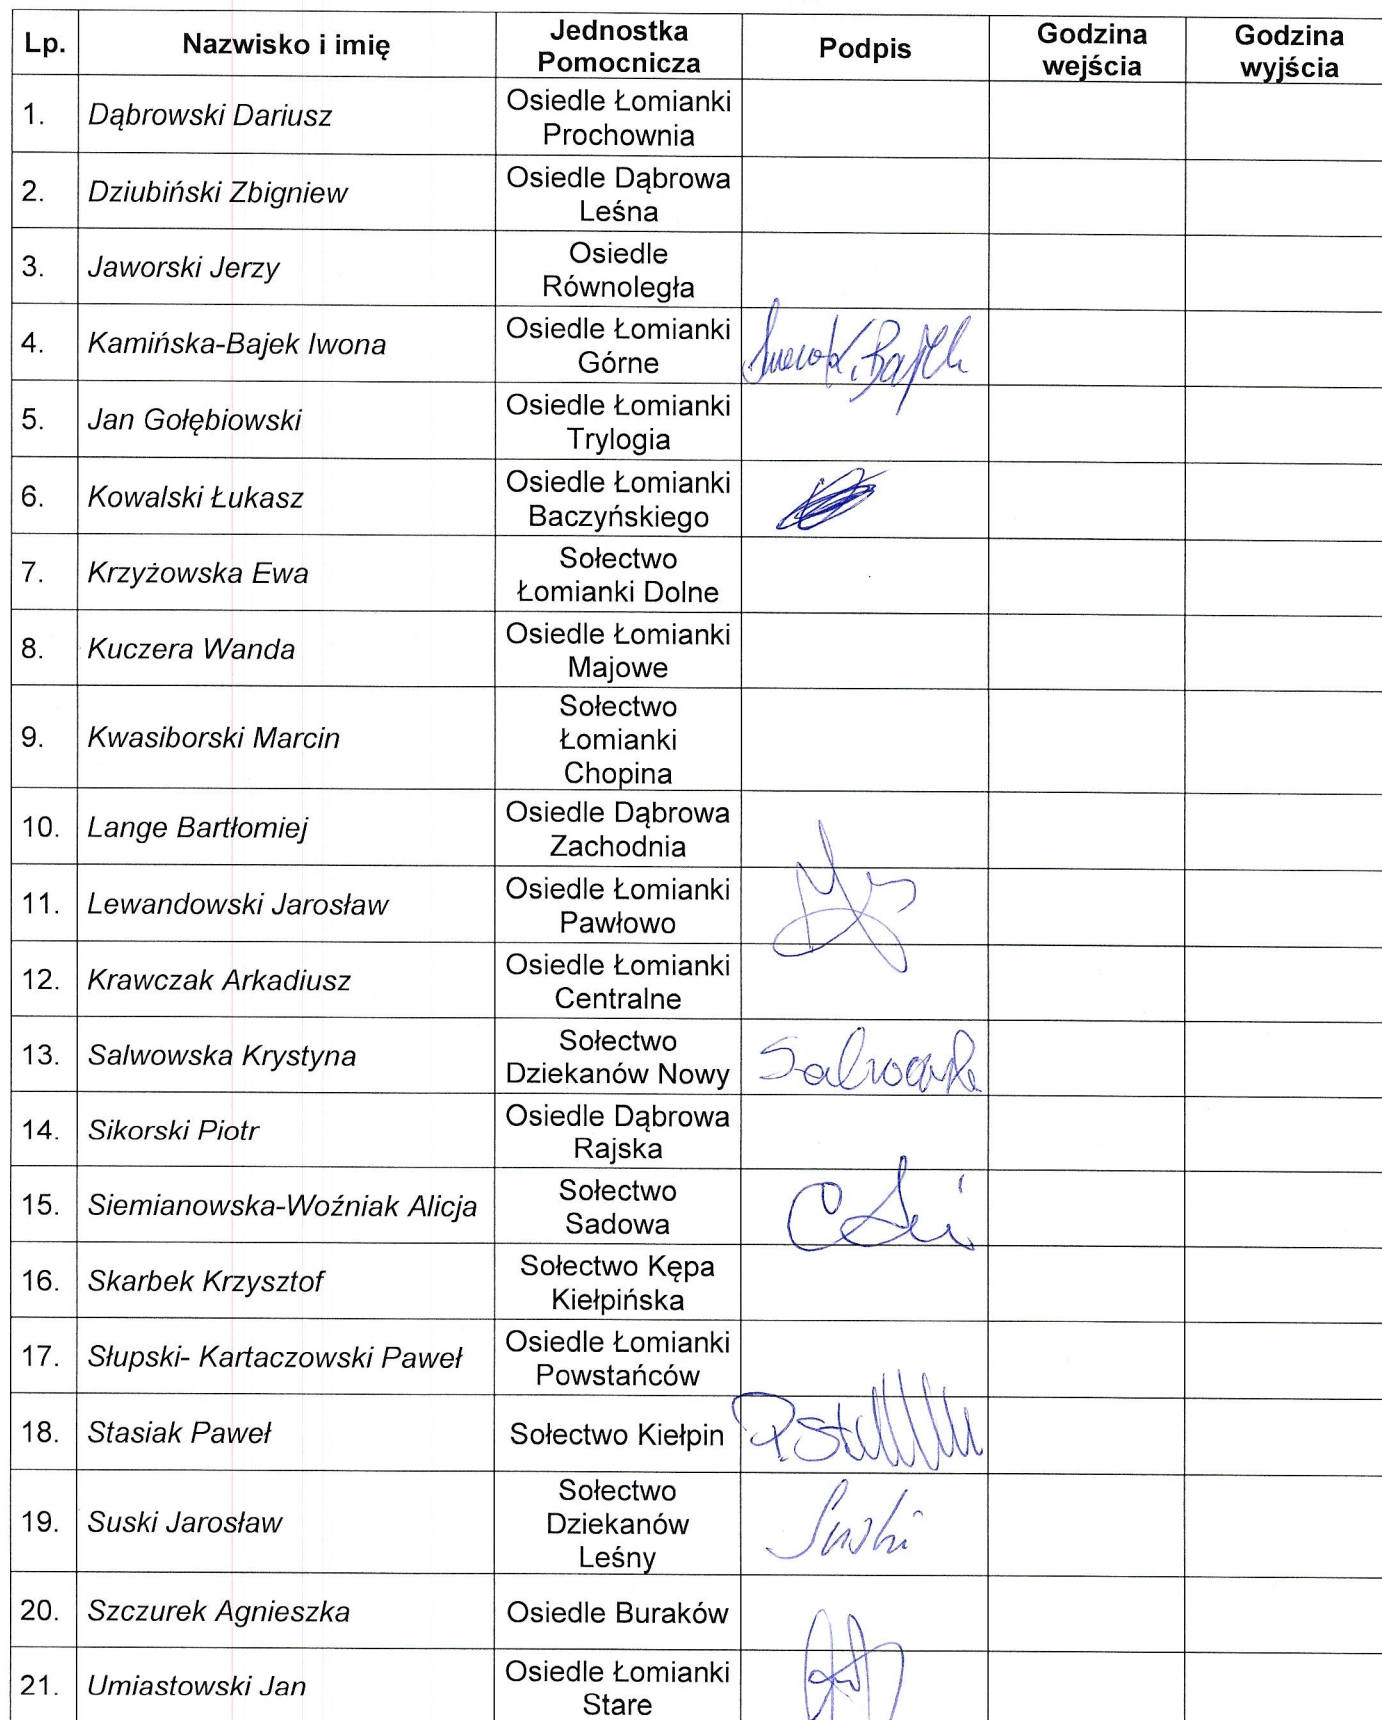 Lp. Nazwisko i imię Jednostka Pomocnicza Podpis Godzina wejścia Godzina wyjścia
1. Dąbrowski Dariusz Osiedle Łomianki Prochownia
2. Dziubiński Zbigniew Osiedle Dąbrowa Leśna
3. Jaworski Jerzy Osiedle Równoległa
4. Kamińska-Bajek Iwona Osiedle Łomianki Górne
5. Jan Gołębiowski Osiedle Łomianki Trylogia
6. Kowalski Łukasz Osiedle Łomianki Baczyńskiego
7. Krzyżowska Ewa Sołectwo Łomianki Dolne
8. Kuczera Wanda Osiedle Łomianki Majowe
9. Kwasiborski Marcin Sołectwo Łomianki Chopina
10. Lange Bartłomiej Osiedle Dąbrowa Zachodnia
11. Lewandowski Jarosław Osiedle Łomianki Pawłowo
12. Krawczak Arkadiusz Osiedle Łomianki Centralne
13. Salwowska Krystyna Sołectwo Dziekanów Nowy
14. Sikorski Piotr Osiedle Dąbrowa Rajska
15. Siemianowska-Woźniak Alicja Sołectwo Sadowa
16. Skarbek Krzysztof Sołectwo Kępa Kiełpińska
17. Słupski- Kartaczowski Paweł Osiedle Łomianki Powstańców
18. Stasiak Paweł Sołectwo Kiełpin
19. Suski Jarosław Sołectwo Dziekanów Leśny Suski
20. Szczurek Agnieszka Osiedle Buraków
21. Umiastowski Jan Osiedle Łomianki Stare